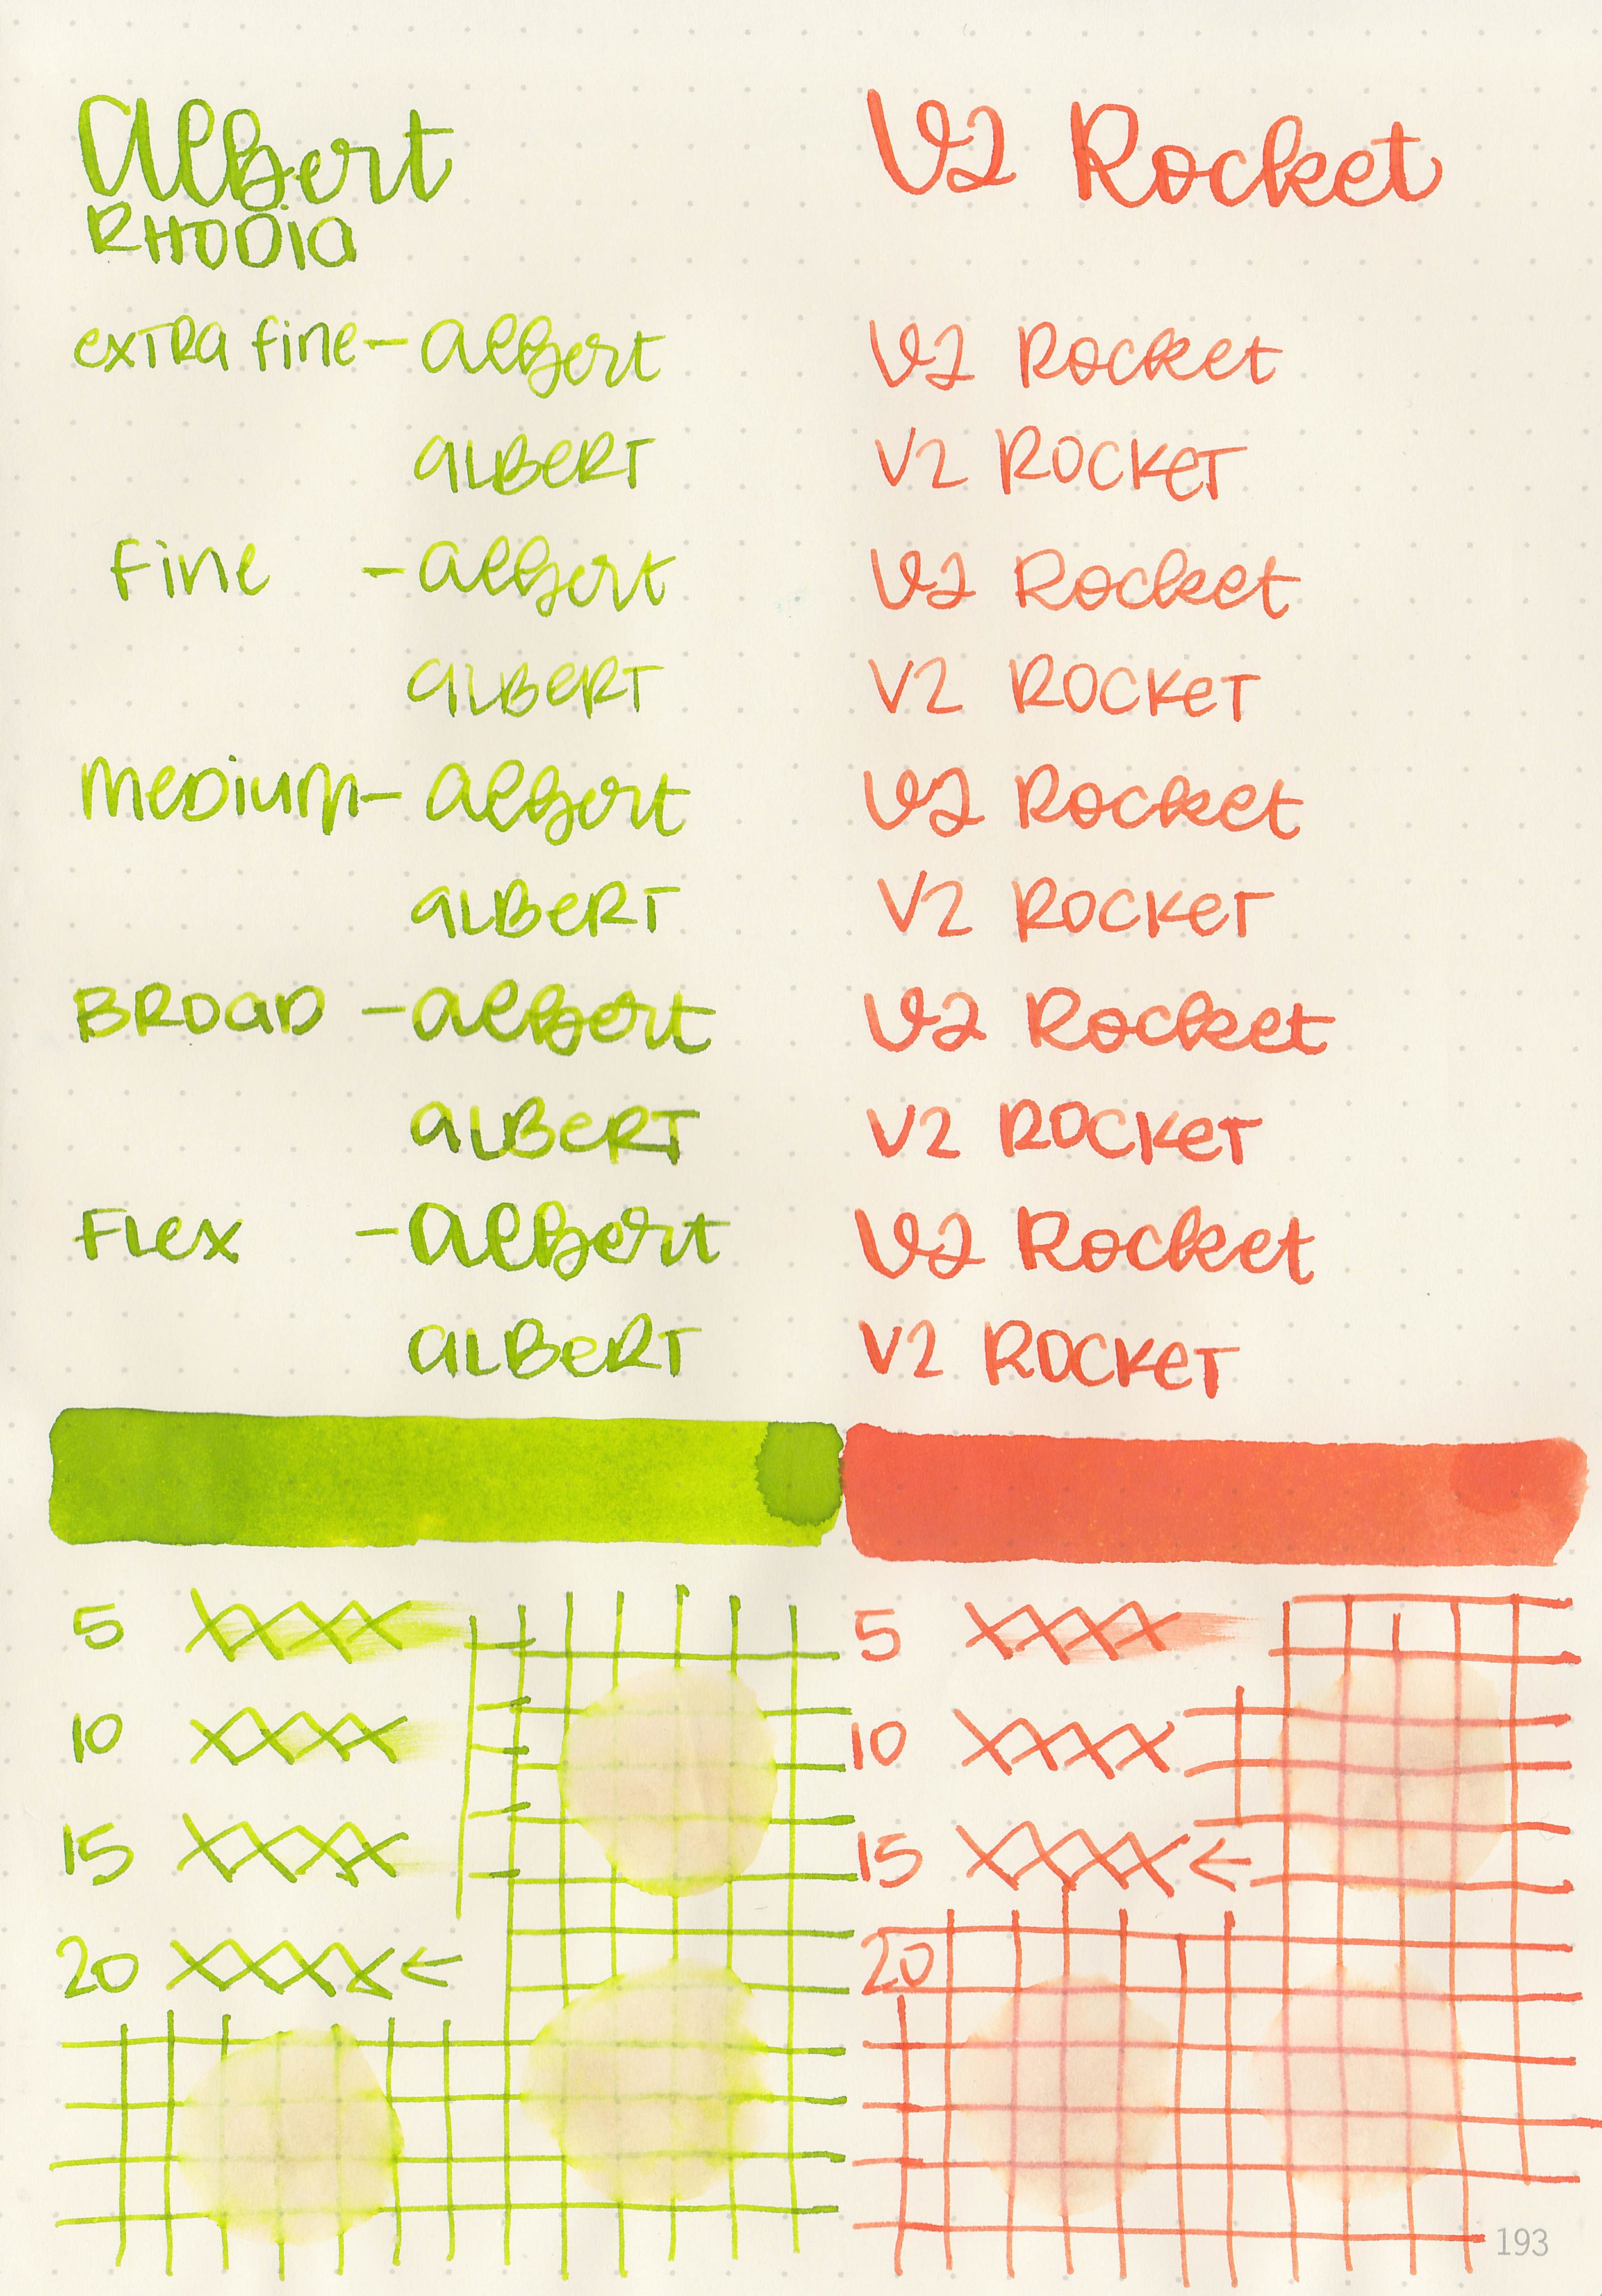 Albert V2 Rocket
RHODIA
extra fine - Albert V2 Rocket
ALBERT V2 ROCKET
fine - Albert V2 Rocket
ALBERT V2 ROCKET
MEDIUM - Albert V2 Rocket
ALBERT V2 ROCKET
BROAD - Albert V2 Rocket
ALBERT V2 ROCKET
FLEX - Albert V2 Rocket
ALBERT V2 ROCKET
5 XXXX 5 XXXX
10 XXXX 10 XXXX
15 XXXX 15 XXXX ←
20 XXXX ← 20
193